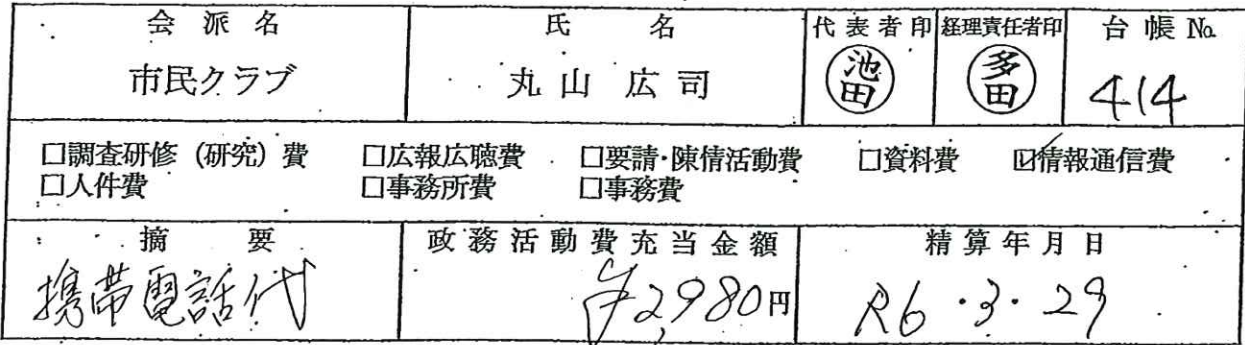 会派名 氏名 代表者印 経理責任者印 台帳No.
市民クラブ 丸山 広司 池田 多田 414
□調査研修（研究）費 □広報広聴費 □要請・陳情活動費 □資料費 ☑情報通信費
□人件費 □事務所費 □事務費
摘要 政務活動費充当金額 精算年月日
携帯電話代 ¥2,980円 R6・3・29